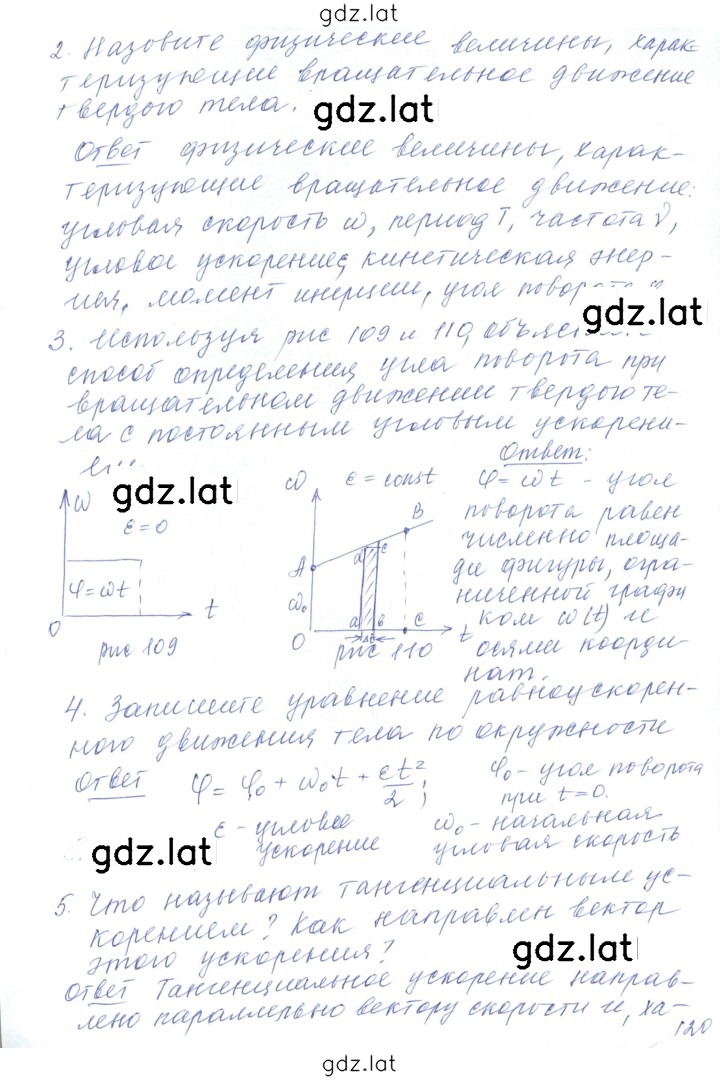 gdz.lat
2. Назовите физические величины, харак-
теризующие вращательное движение
твердого тела.
gdz.lat
Ответ физические величины, харак-
теризующие вращательное движение:
угловая скорость ω, период T, частота ν,
угловое ускорение ε, кинетическая энер-
гия, момент инерции, угол поворота
gdz.lat
3. Используя рис 109 и 110, объясните
способ определения угла поворота при
вращательном движении твердого те-
ла с постоянным угловым ускорени-
ем.
gdz.lat
ω
ε = 0
φ = ωt
0
t
рис 109
ω
ε = const
B
A
d
c
ω₀
a
b
C
0
Δt
t
рис 110
Ответ:
φ = ωt - угол
поворота равен
численно площа-
ди фигуры, огра-
ниченной графи
ком ω(t) и
осями коорди-
нат.
4. Запишите уравнение равноускорен-
ного движения тела по окружности
Ответ φ = φ₀ + ω₀t + εt²/2;
φ₀ - угол поворота
при t = 0.
ε - угловое
ускорение
ω₀ - начальная
угловая скорость
gdz.lat
5. Что называют тангенциальным ус-
корением? Как направлен вектор
этого ускорения?
gdz.lat
Ответ Тангенциальное ускорение направ-
лено параллельно вектору скорости и, ха-
120
gdz.lat